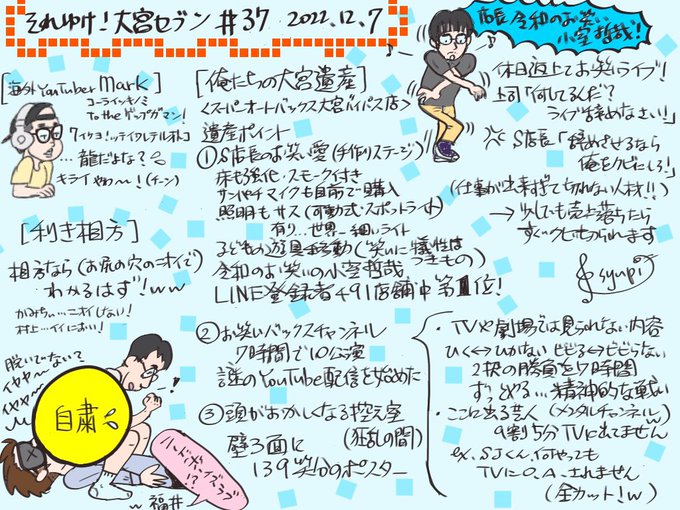 それゆけ!大宮セブン #37 2022.12.7
店長 令和のお笑い
小室哲哉!
[海外YouTuber Mark]
コーライッキノミ
to the ゲップガマン!
ワイヤョ!ッテイワレテルオトコ
…龍だよな?
キライやわ〜!(チーン)
[俺たちの大宮遺産]
<スーパーオートバックス大宮バイパス店>
遺産ポイント
①S店長のお笑い愛(手作りステージ)
床も強化・スモーク付き
サンパチマイクも自前で購入
照明もサス(可動式・スポットライト)
有り…世界一細いライト
子ども遊具移動(笑いに犠牲は
つきもの)
令和のお笑いの小室哲哉
LINE登録者491店舗中第1位!
休日返上でお笑いライブ!
上司「何してるんだ?
ライブは辞めなさい!」
S店長「辞めさせるなら
俺をクビにしろ!」
(仕事が出来すぎて切れない人材!!)
→少しでも売上落ちたら
すぐクビ切られます
syupi
[利き相方]
相方なら(お尻の穴のニオイで)
わかるはず!ww
かみちぃ…ニオイしない!
村上…イイにおい!
脱いでないで
イヤや〜
イヤや〜
自粛
ハードボイズラブ
!?
w 福井
②お笑いバックスチャンネル
7時間で10公演
謎のYouTube配信を始めた
③頭がおかしくなる控え室
(狂乱の間)
壁3面に
139笑分のポスター
・TVや劇場では見られない内容
ひく↔ひかない ビビる↔ビビらない
2択の勝負を7時間
ずっとやる…精神的な戦い
・ここに出る芸人(メンタルチャンネル)
9割5分TVに出てません
ex.SJくん、何やっても
TVにO.A.されません
(全カット!w)